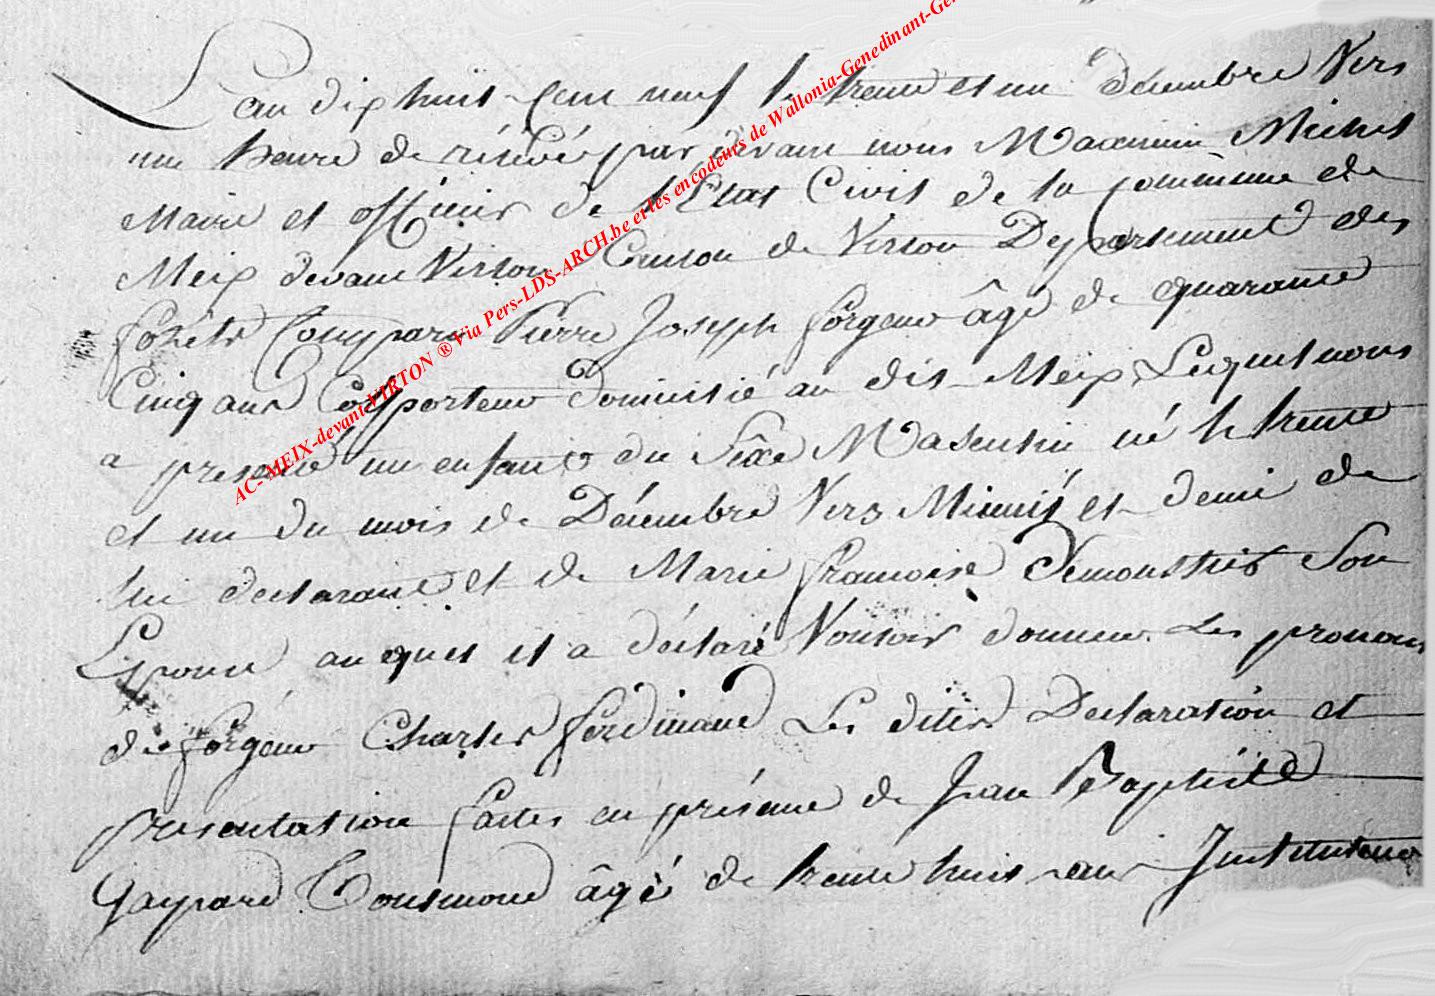 L'an dix huit Cent neuf le trente et un décembre Vers
une heure de rélevée par dévant nous Maximin Michel
Maire et officier de l'Etat Civil de la commune de
Meix devant Virton Canton de Virton Departement des
forêts Comparu Pierre Joseph forgeur âgé de quarante
Cinq ans Colporteur domicilié au dit Meix Lequel nous
a presenté un enfant du Sexe Masculin né le trente
et un du mois de Décembre Vers Minuit et demi de
lui declarant et de Marie francoise Son
Epouse auquel il a déclaré Vouloir donner Les prenoms
de forgeur Charles ferdinand Les dites Declaration et
presentation faites en présence de Jean Baptiste
Gaspard Tousmond âgé de trente huit ans Instituteur
AC-MEIX-devant-VIRTON ® Via Pers-LDS-ARCH.be et les encodeurs de Wallonia-Genedinant-Ge